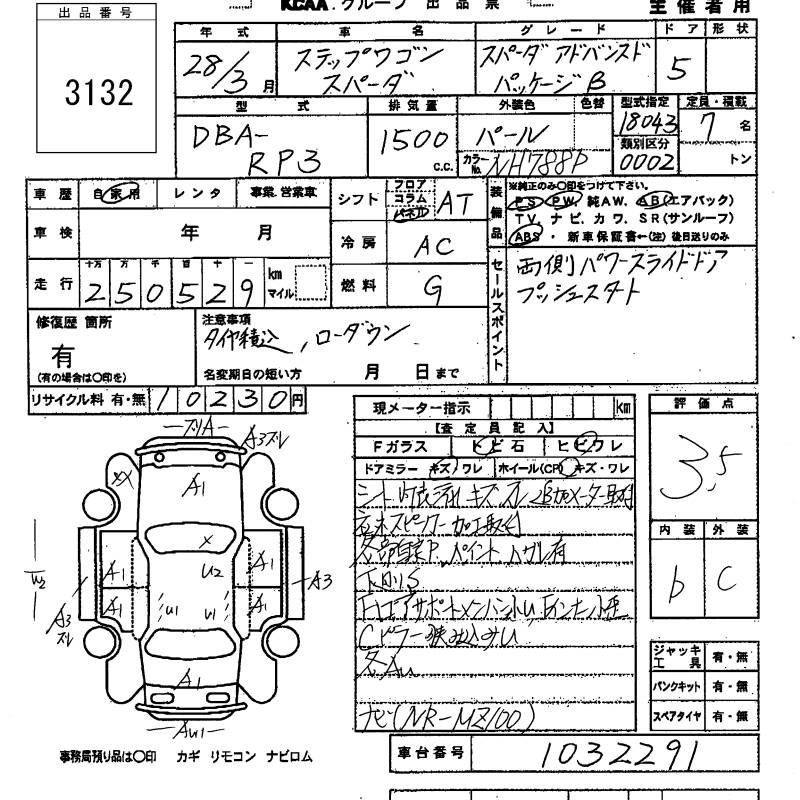 KCAA.グループ 出品票
主催者用
出品番号
3132
年式 車名 グレード ドア 形状
28/3月 ステップワゴン スパーダ スパーダ アドバンスド パッケージβ 5
型式 排気量 外装色 色替 型式指定 定員・積載
DBA-RP3 1500 c.c. パール カラーNo. NH788P 18043 7名
類別区分 0002 トン
車歴 自家用 レンタ 事業.営業車
シフト フロア コラム パネル AT
装備品 ※純正のみ〇印をつけて下さい。
PS PW. 純AW. AB(エアバック)
TV. ナビ. カワ. SR(サンルーフ)
ABS・新車保証書←(注)後日送りのみ
車検 年 月
冷房 AC
走行 十万 万 千 百 十 一
250529 km マイル
燃料 G
セールスポイント
両側パワースライドドア
プッシュスタート
修復歴 箇所
有
(有の場合は〇印を)
注意事項
タイヤ積込、ローダウン
名変期日の短い方 月 日まで
リサイクル料 有・無 10230円
現メーター指示 km
【査定員記入】
Fガラス トビ石 ヒビワレ
ドアミラー キズ/ワレ ホイール(CP) キズ・ワレ
評価点
3.5
内装 外装
b C
A1
A3
スレ
XX
A1
X
U2
A1 A1
A1 A1
U1 U1
W2
A3
A3
スレ
A1
AU1
下回りS
ナビ(NR-MZ100)
ジャッキ工具 有・無
パンクキット 有・無
スペアタイヤ 有・無
事務局預り品は〇印 カギ リモコン ナビロム
車台番号 1032291